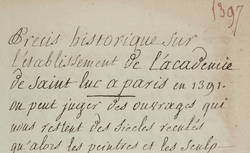 1397
Precis historique sur
l'établissement de l'academie
de saint luc a paris en 1391.
on peut juger des ouvrages qui
nous restent des siecles reculés
qu'alors les peintres et les sculp-